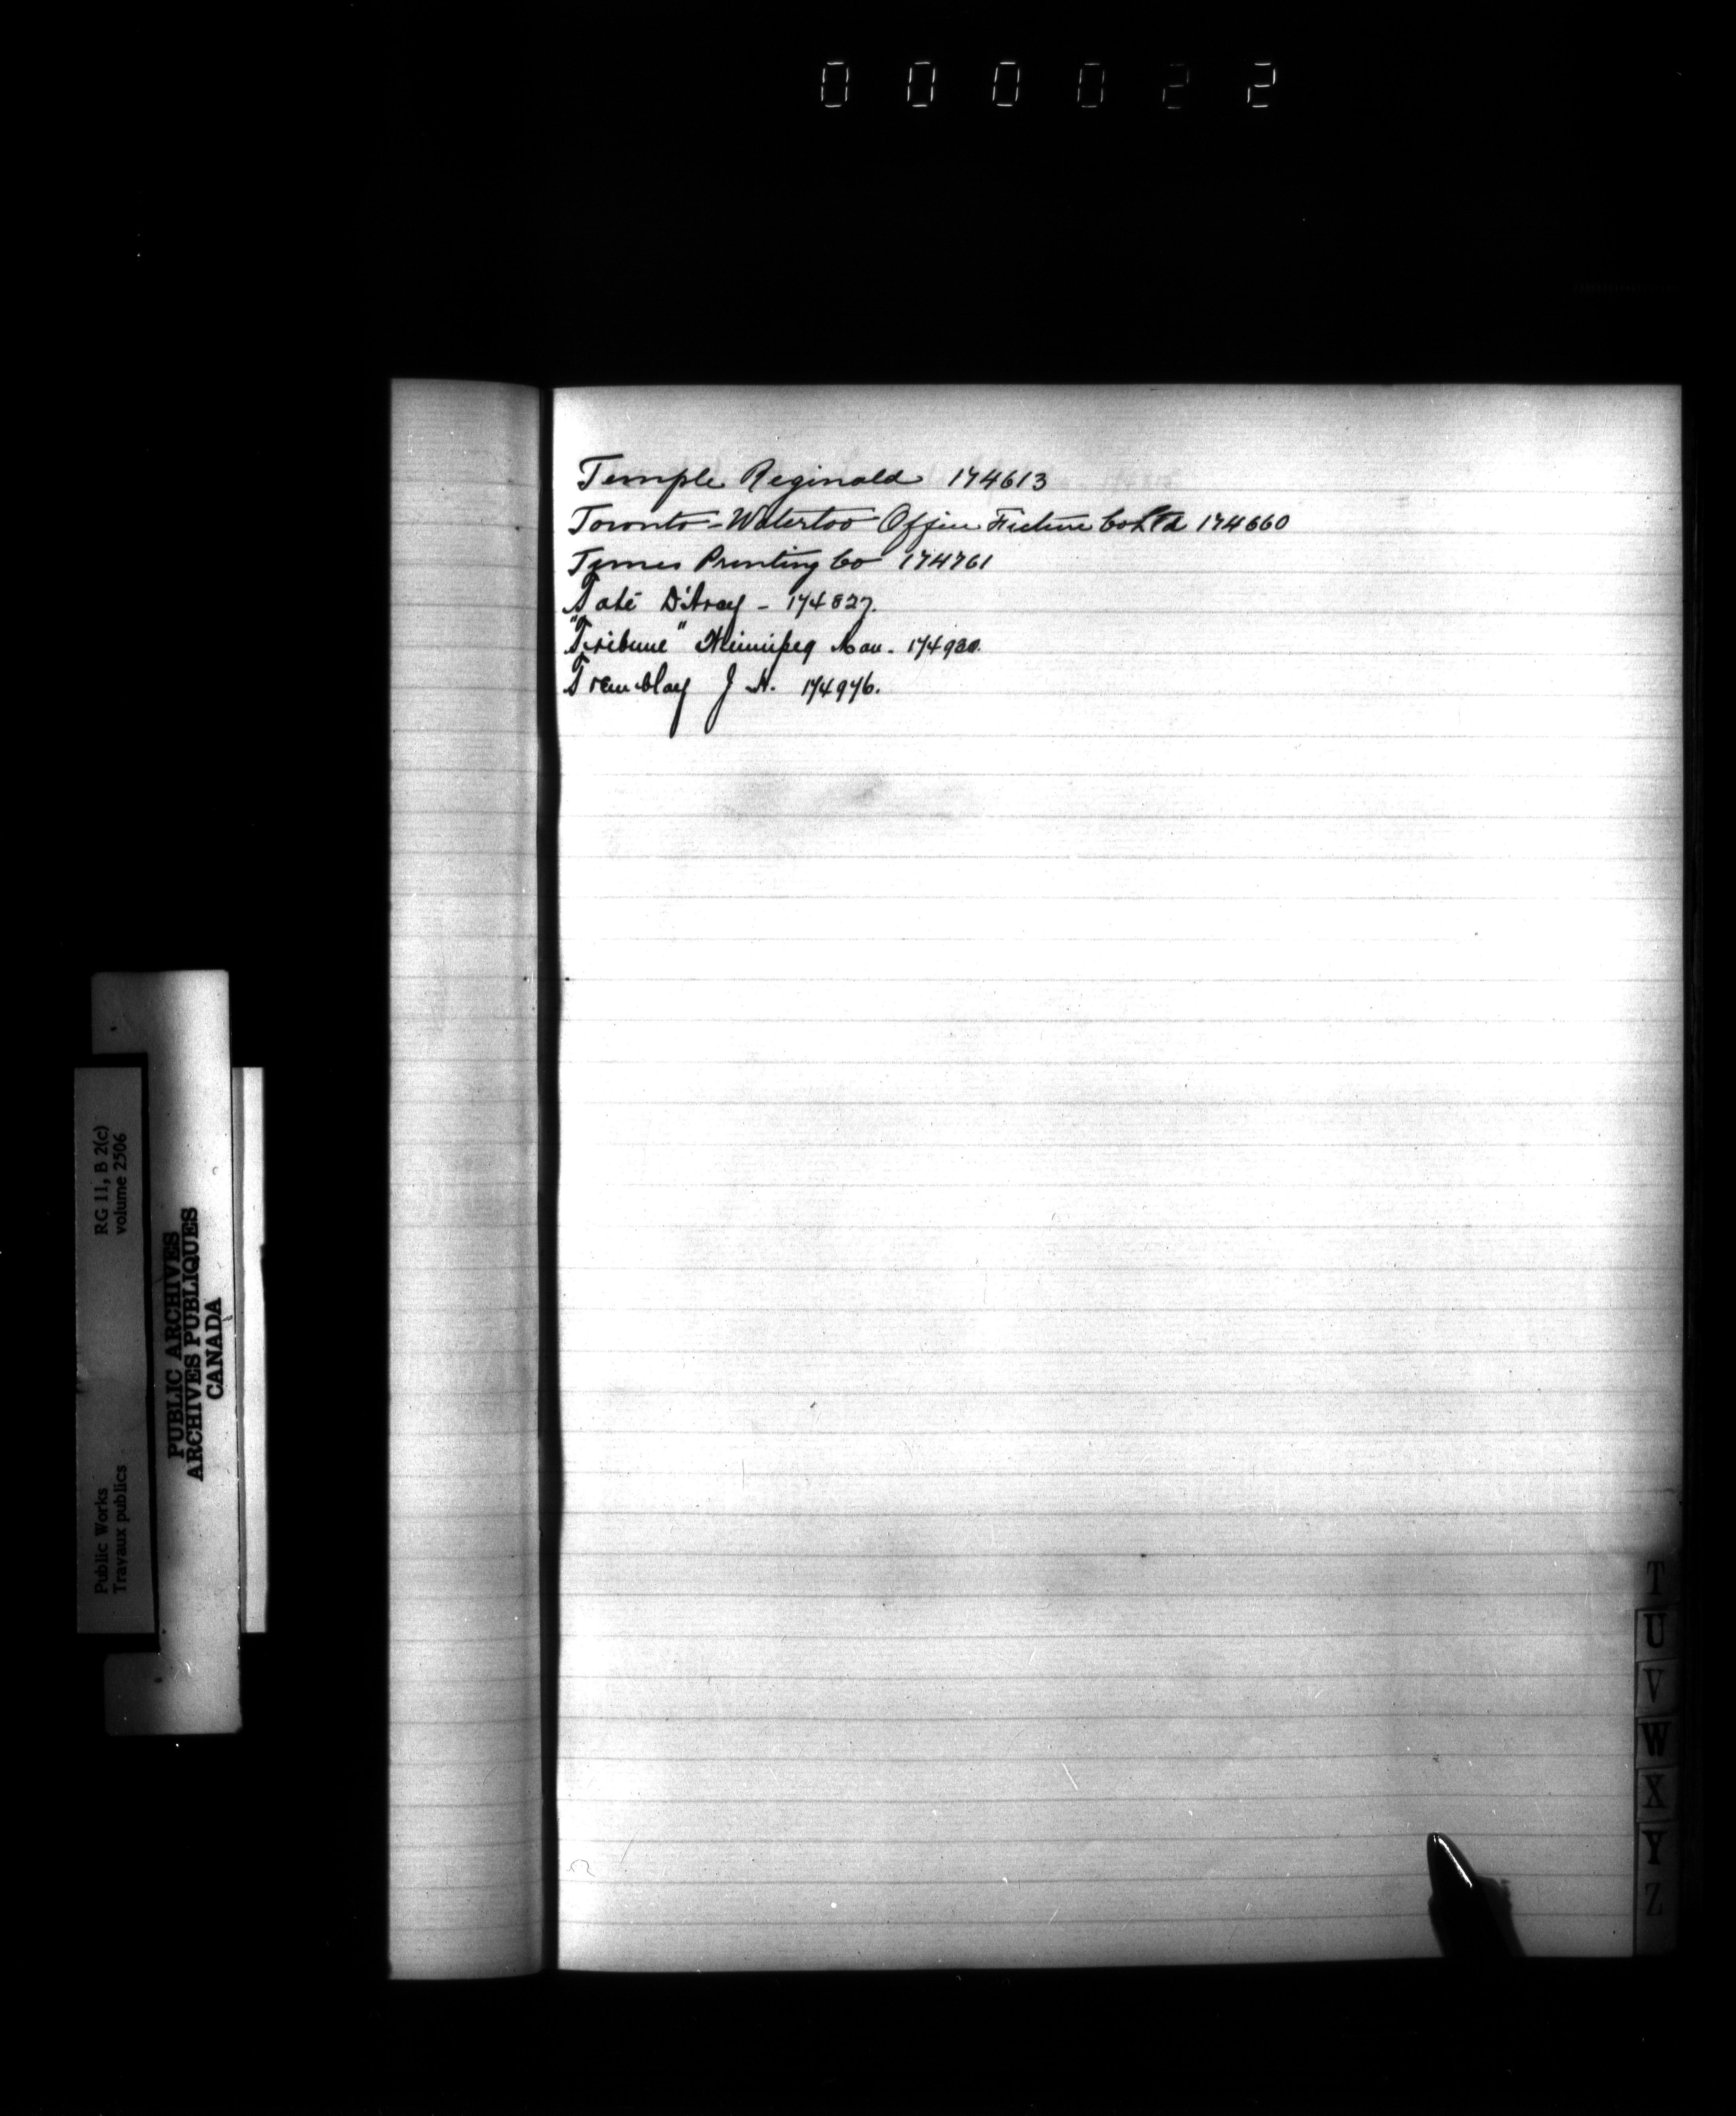 000022
Temple Reginald 174613
Toronto-Waterloo Office Fixture Co Ltd 174660
Times Printing Co 174761
Taté D'Arcy - 174827.
"Tribune" Winnipeg Man. 174930.
Tremblay J H. 174976.
Public Works
Travaux publics
RG 11, B 2(c)
volume 2506
PUBLIC ARCHIVES
ARCHIVES PUBLIQUES
CANADA
T
U
V
W
X
Y
Z